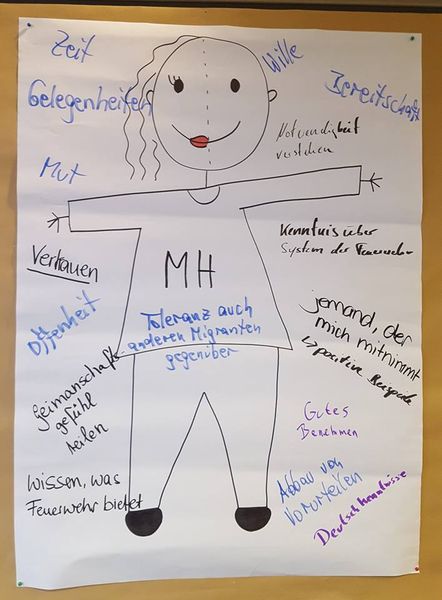 Zeit
Wille
Gelegenheiten
Bereitschaft
Notwendigkeit
verstehen
Mut
Kenntnis über
System der Feuerwehr
Vertrauen
MH
Offenheit
Toleranz auch
anderen Migranten
gegenüber
jemand, der
mich mitnimmt
↳ positive Beispiele
Gemeinschafts-
gefühl
teilen
Gutes
Benehmen
Wissen, was
Feuerwehr bietet
Abbau von
Vorurteilen
Deutschkenntnisse